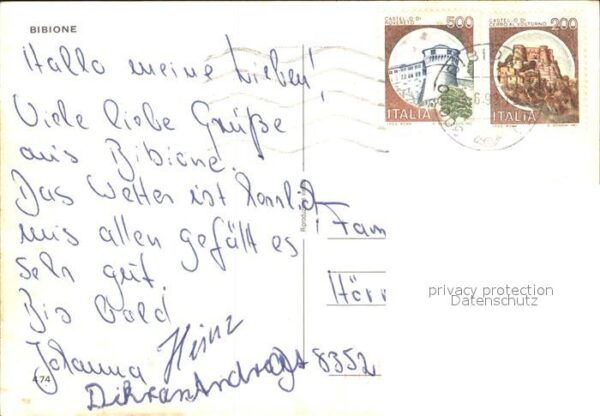 BIBIONE
Hallo meine Lieben!
Viele liebe Grüße
aus Bibione.
Das Wetter ist herrlich
uns allen gefällt es
sehr gut.
Bis Bald
Johanna Heinz
474
CASTELLO DI
ROVERETO
500
ITALIA
CASTELLO DI
CERRO AL VOLTURNO
200
ITALIA
Fam
Hör
8352
privacy protection
Datenschutz